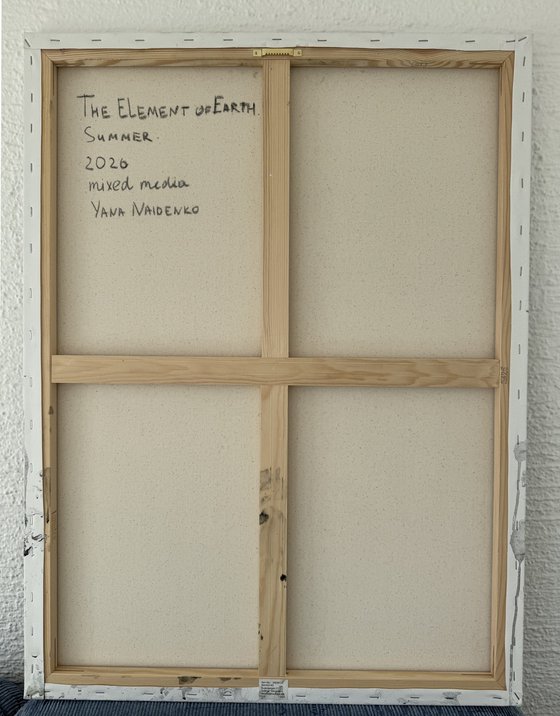 THE ELEMENT OF EARTH.
SUMMER.
2026
mixed media
YANA NAIDENKO